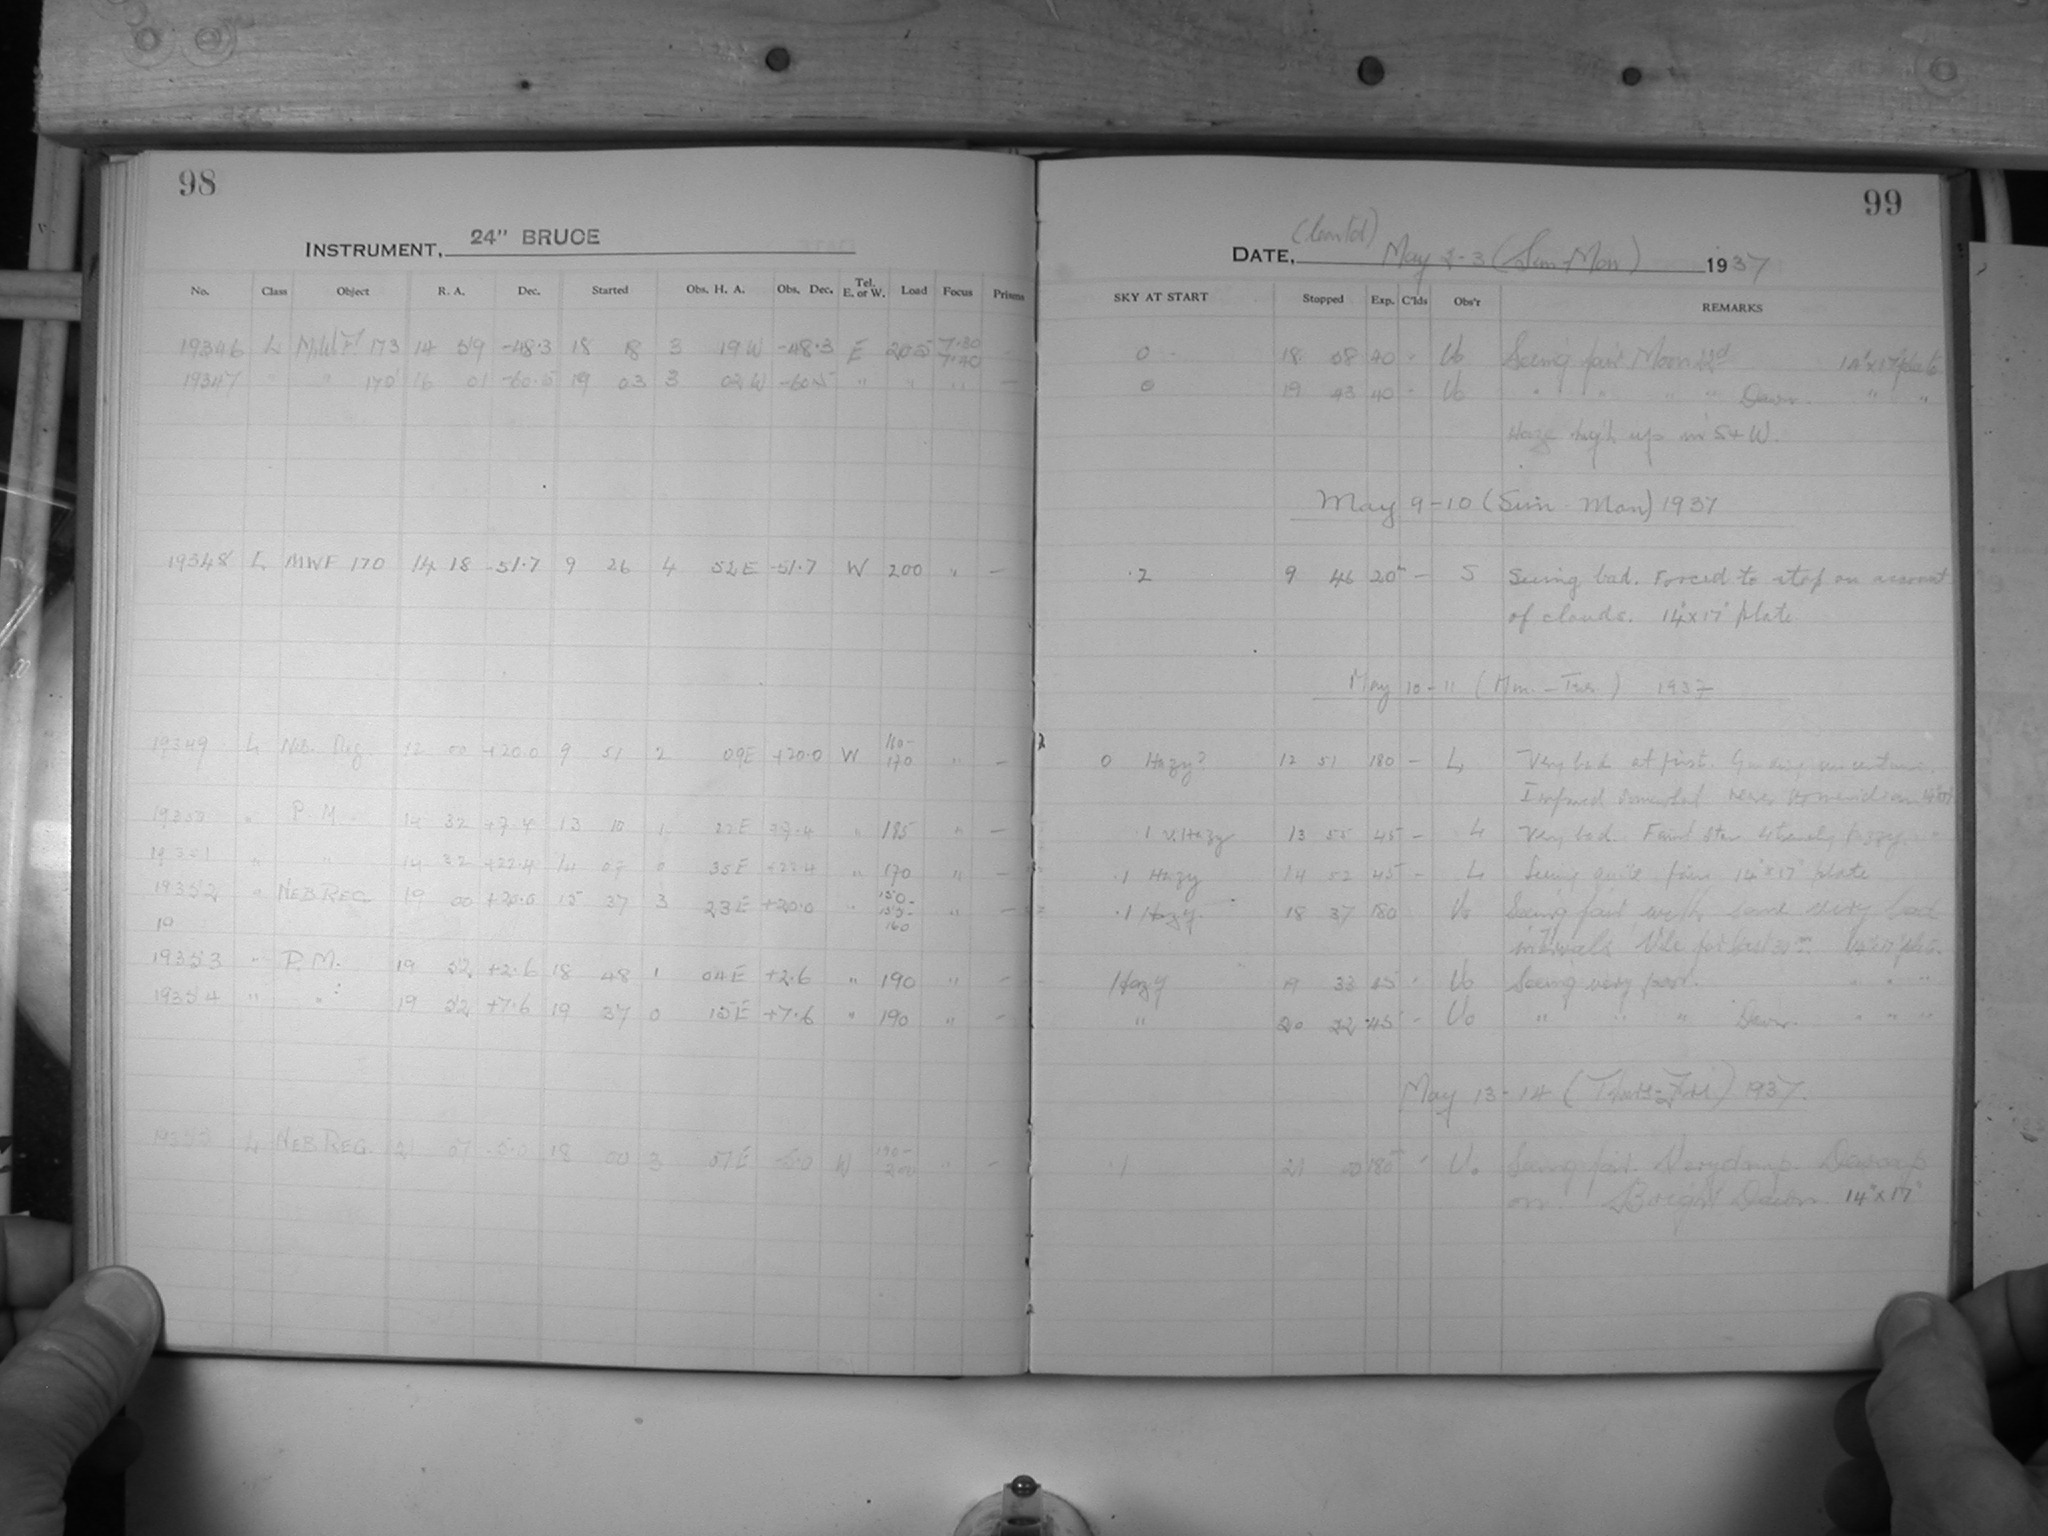 98
INSTRUMENT, 24" BRUCE
No. Class Object R. A. Dec. Started Obs. H. A. Obs. Dec. Tel. E. or W. Load Focus Prisms
19346 L M.W.F. 173 14 59 -48.3 18 18 3 19 W -48.3 E 205 7.30 7.40 -
19347 " " 170 16 01 -60.5 19 03 3 02 W -60.5 " " " -
19348 L MWF 170 14 18 -51.7 9 26 4 52 E -51.7 W 200 " -
19349 L Neb. Reg. 12 00 +20.0 9 51 2 09E +20.0 W 160- 170 " -
19350 " P. M. 14 32 +7.4 13 10 1 22E +7.4 " 185 " -
19351 " " 14 32 +22.4 14 07 0 35E +22.4 " 170 " -
19352 " NEB REG 19 00 +20.0 15 37 3 23E +20.0 " 150- 155- 160 " -
19
19353 " P. M. 19 52 +2.6 18 48 1 04E +2.6 " 190 " -
19354 " " 19 52 +7.6 19 37 0 15E +7.6 " 190 " -
19355 L NEB REG. 21 07 -5.0 18 00 3 07E -5.0 W 190- 200 " -
99
(Contd)
DATE, May 2-3 (Sun-Mon) 1937
SKY AT START Stopped Exp. C'lds Obs'r REMARKS
0 18 58 40 - Uo Seeing fair Moon 22d 14"x17" plate
0 19 43 40 - Uo " " " " Dawn. " "
Haze high up in S + W.
May 9-10 (Sun - Mon) 1937
.2 9 46 20m - S Seeing bad. Forced to stop on account
of clouds. 14"x17" plate
May 10-11 (Mon. - Tues.) 1937
0 Hazy? 12 51 180 - L Very bad at first. Guiding uncertain.
Improved somewhat near meridian
.1 v. Hazy 13 55 45 - L Very bad. Faint star extremely fuzzy. "
.1 Hazy 14 52 45 - L Seeing quite fair 14"x17" plate
.1 Hazy. 18 37 180 Uo Seeing fair with some very bad
intervals. Vile for last 30m. 14"x17" plate.
Hazy 19 33 45 - Uo Seeing very poor. " " "
" 20 22 45 - Uo " " " Dawn. " " "
May 13-14 (Thurs-Fri) 1937.
.1 21 00 180 - Uo Seeing fair. Very damp. Dewcap
on. Bright Dawn. 14"x17"